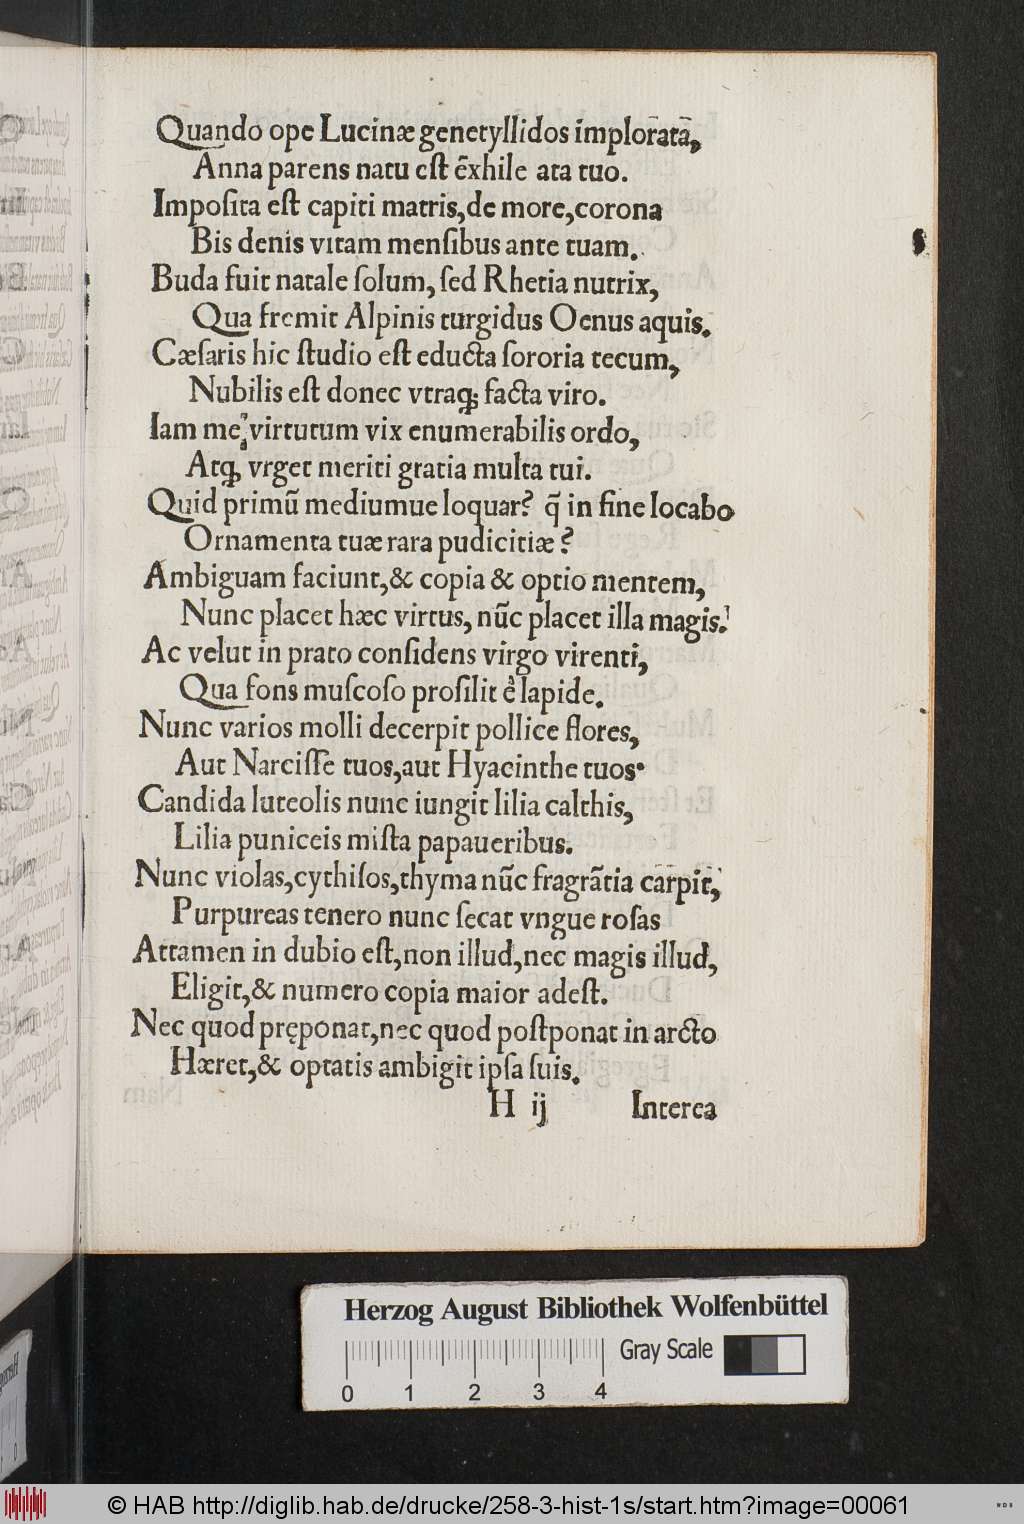 Quando ope Lucinæ genetyllidos implorata̅,
Anna parens natu eſt ẽxhile ata tuo.
Impoſita eſt capiti matris, de more, corona
Bis denis vitam menſibus ante tuam.
Buda fuit natale ſolum, ſed Rhetia nutrix,
Qua fremit Alpinis turgidus Oenus aquis.
Cæſaris hic ſtudio eſt educta ſororia tecum,
Nubilis eſt donec vtraqꝫ facta viro.
Iam me virtutum vix enumerabilis ordo,
Atqꝫ vrget meriti gratia multa tui.
Quid primũ mediumue loquar? q̃ in fine locabo
Ornamenta tuæ rara pudicitiæ?
Ambiguam faciunt, & copia & optio mentem,
Nunc placet hæc virtus, nũc placet illa magis.
Ac velut in prato conſidens virgo virenti,
Qua fons muſcoſo proſilit è lapide.
Nunc varios molli decerpit pollice flores,
Aut Narciſſe tuos, aut Hyacinthe tuos.
Candida luteolis nunc iungit lilia calthis,
Lilia puniceis miſta papaueribus.
Nunc violas, cythiſos, thyma nũc fragrãtia carpit,
Purpureas tenero nunc ſecat vngue roſas
Attamen in dubio eſt, non illud, nec magis illud,
Eligit, & numero copia maior adeſt.
Nec quod pręponat, nec quod poſtponat in arcto
Hæret, & optatis ambigit ipſa ſuis.
H ij Interea
Herzog August Bibliothek Wolfenbüttel
Gray Scale
0 1 2 3 4
© HAB http://diglib.hab.de/drucke/258-3-hist-1s/start.htm?image=00061